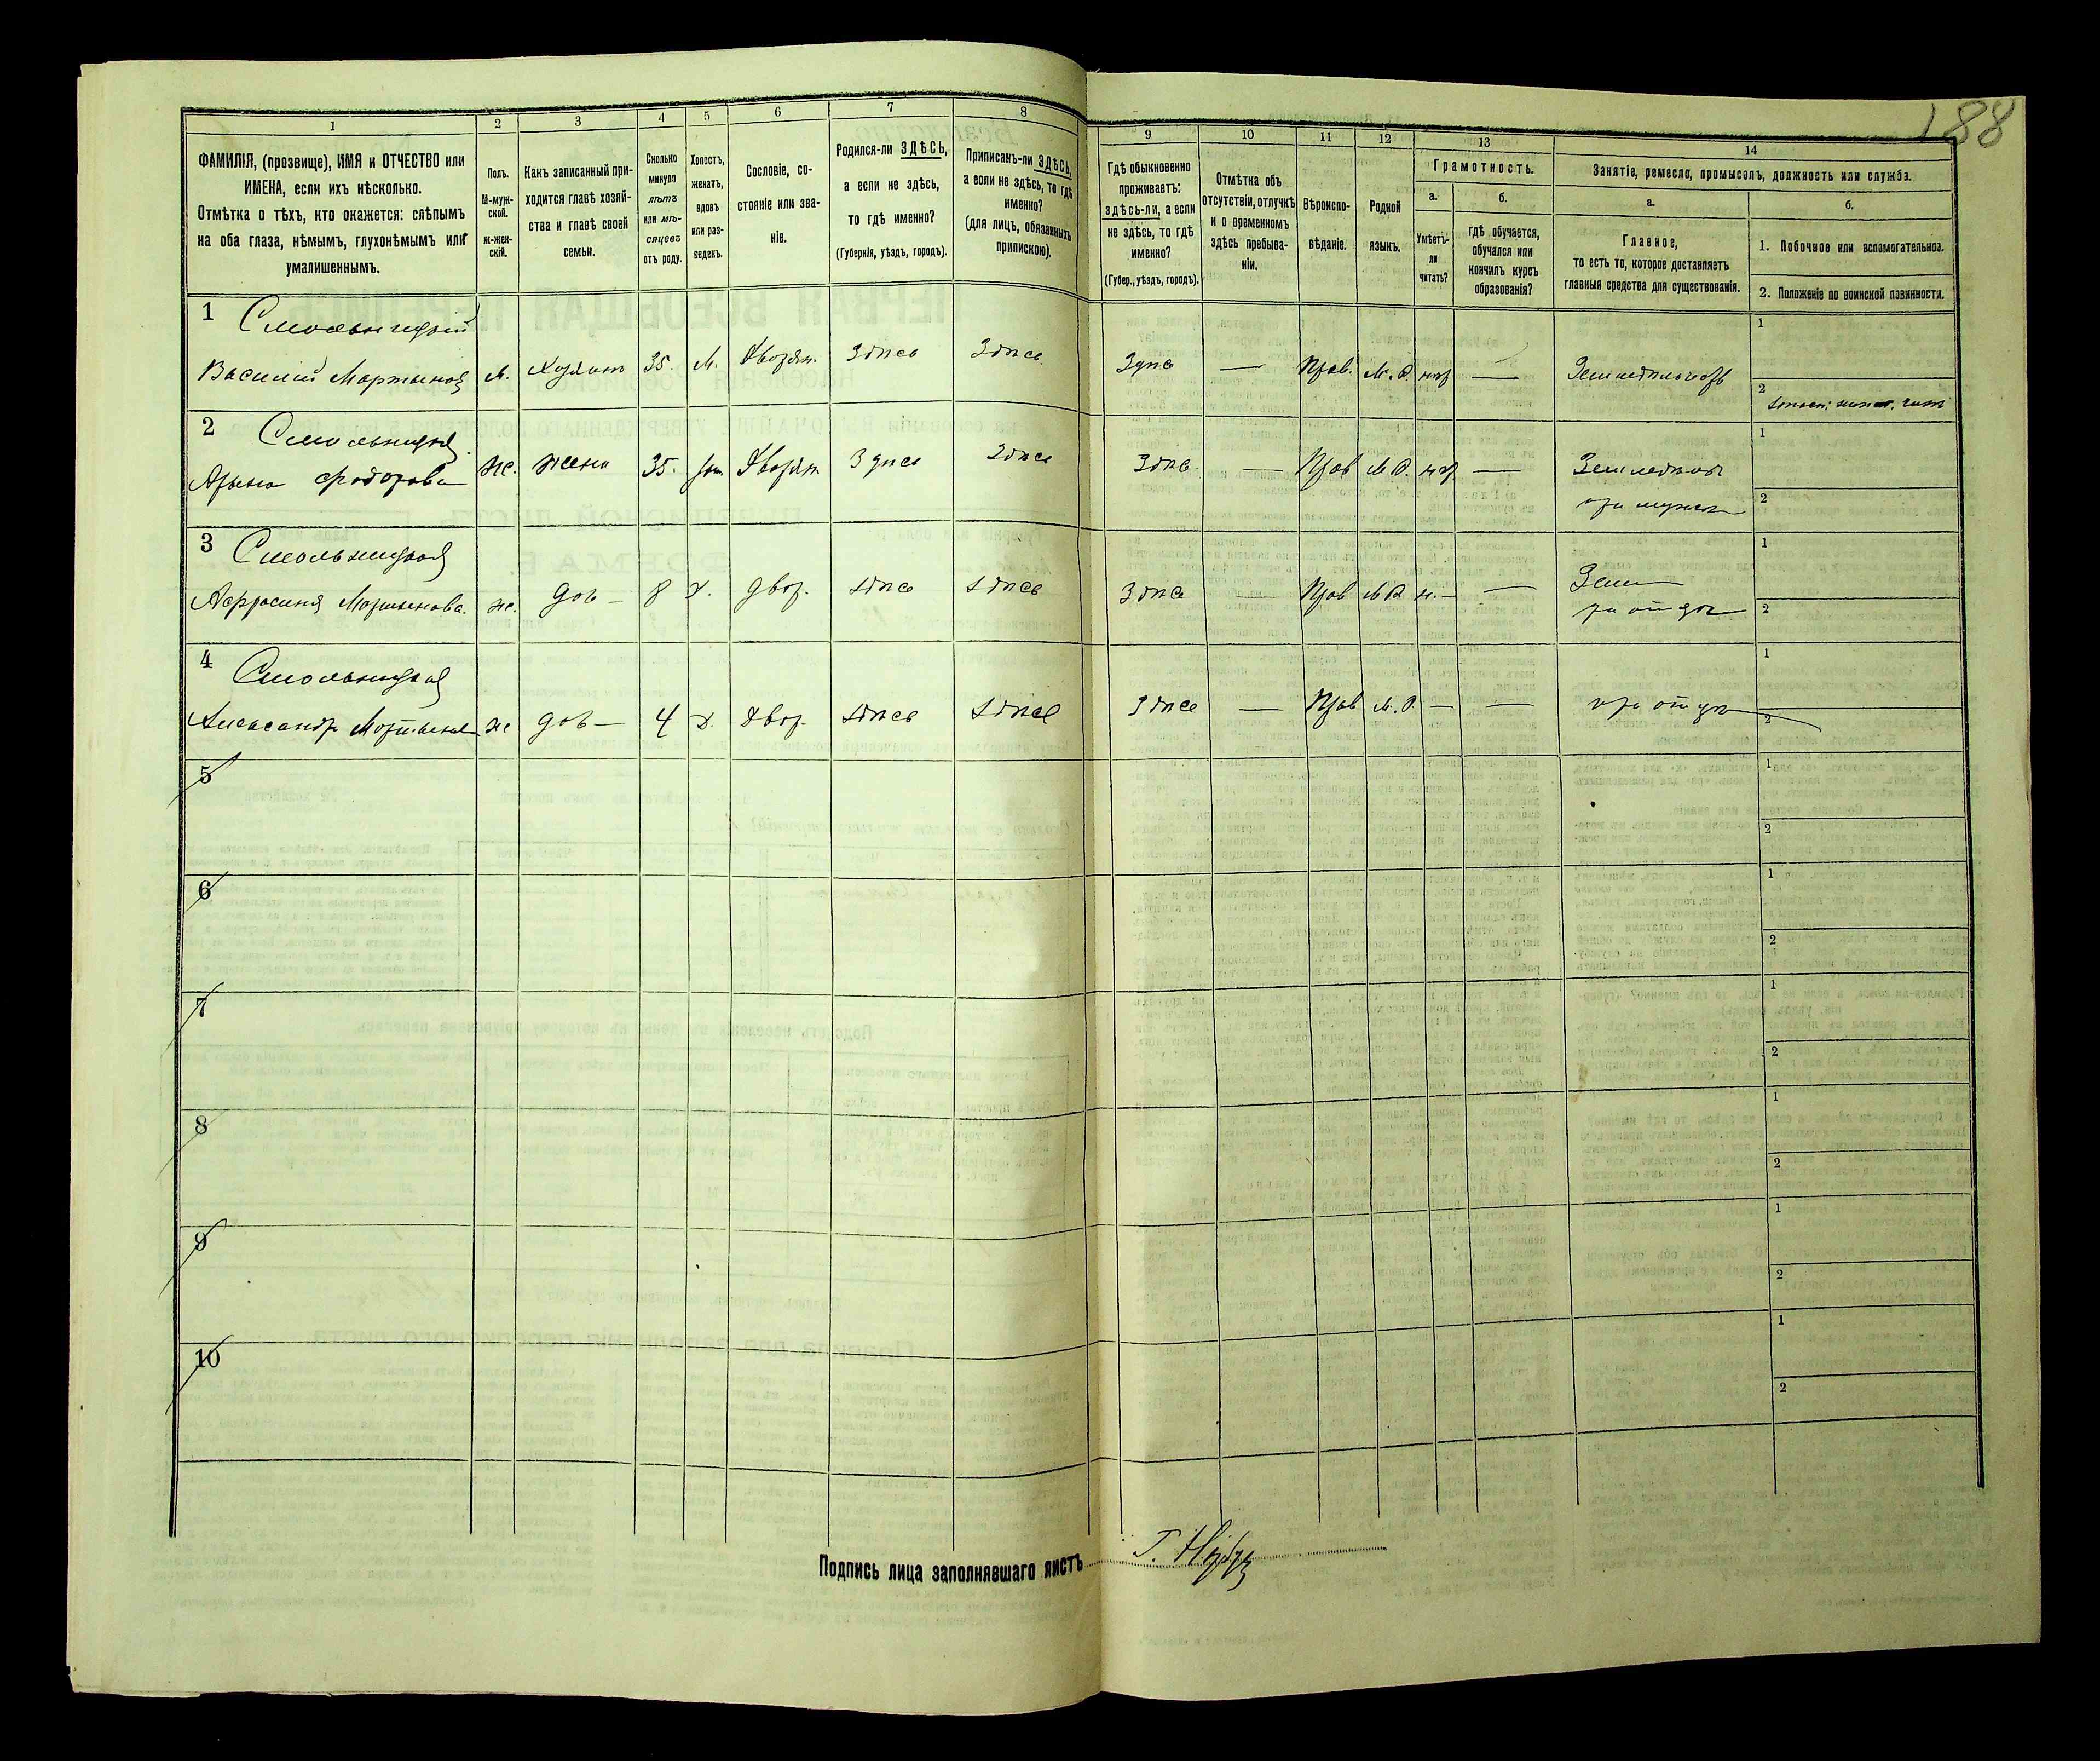 188
1
2
3
4
5
6
7
8
9
10
11
12
13
14
ФАМИЛІЯ, (прозвище), ИМЯ и ОТЧЕСТВО или
ИМЕНА, если ихъ нѣсколько.
Отмѣтка о тѣхъ, кто окажется: слѣпымъ
на оба глаза, нѣмымъ, глухонѣмымъ или
умалишеннымъ.
Полъ.
М-муж-
ской.
ж-жен-
скій.
Какъ записанный при-
ходится главѣ хозяй-
ства и главѣ своей
семьи.
Сколько
минуло
лѣтъ
или мѣ-
сяцевъ
отъ роду.
Холостъ,
женатъ,
вдовъ
или раз-
веденъ.
Сословіе, со-
стояніе или зва-
ніе.
Родился-ли ЗДѢСЬ,
а если не здѣсь,
то гдѣ именно?
(Губернія, уѣздъ, городъ).
Приписанъ-ли ЗДѢСЬ,
а если не здѣсь, то гдѣ
именно?
(для лицъ, обязанныхъ
припискою).
Гдѣ обыкновенно
проживаетъ:
здѣсь-ли, а если
не здѣсь, то гдѣ
именно?
(Губер., уѣздъ, городъ).
Отмѣтка объ
отсутствіи, отлучкѣ
и о временномъ
здѣсь пребыва-
ніи.
Вѣроиспо-
вѣданіе.
Родной
языкъ.
Грамотность.
а.
Умѣетъ-
ли
читать?
б.
гдѣ обучается,
обучался или
кончилъ курсъ
образованія?
Занятія, ремесло, промыселъ, должность или служба.
а.
Главное,
то есть то, которое доставляетъ
главныя средства для существованія.
б.
1. Побочное или вспомогательное.
2. Положеніе по воинской повинности.
1 Смольницкій
Василій Мартыновъ м. 35. Дворян. Здѣсь Здѣсь Здѣсь — Прав. М.Р. — Земледѣльчест
1
2
2 Смольницкая
Арына Федорова ж. жена 35. Дворян Здѣсь Здѣсь Здѣсь — Прав М.Р. —
при мужѣ
1
2
3 Смольницкая
Мартынова ж. доч — 8 Д. двор. здѣсь здѣсь Здѣсь — Прав М.Р. н. — —
1
2
4 Смольницкая
Александр Мартынова ж доч — 4 Д. двор. здѣсь здѣсь Здѣсь — Прав М.Р. — — при отцѣ
1
2
5
1
2
6
1
2
7
1
2
8
1
2
9
1
2
10
1
2
Подпись лица заполнявшаго листъ